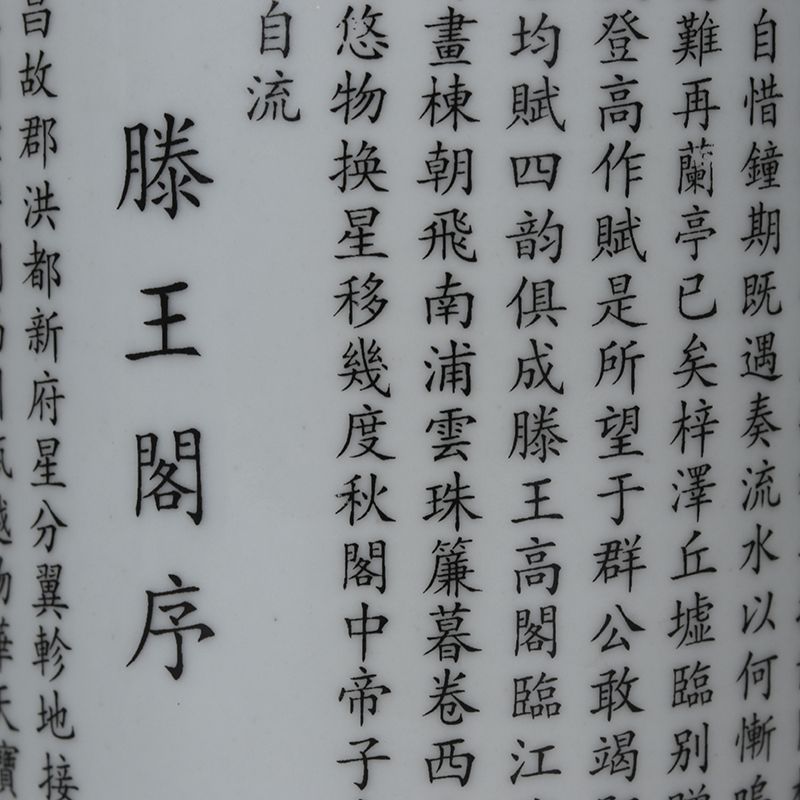 自惜鐘期既遇奏流水以何慚
難再蘭亭已矣梓澤丘墟臨别
登高作賦是所望于群公敢竭
均賦四韵俱成滕王高閣臨江
畫棟朝飛南浦雲珠簾暮卷西
悠物换星移幾度秋閣中帝子
自流
滕王閣序
昌故郡洪都新府星分翼軫地接
越物華天寶